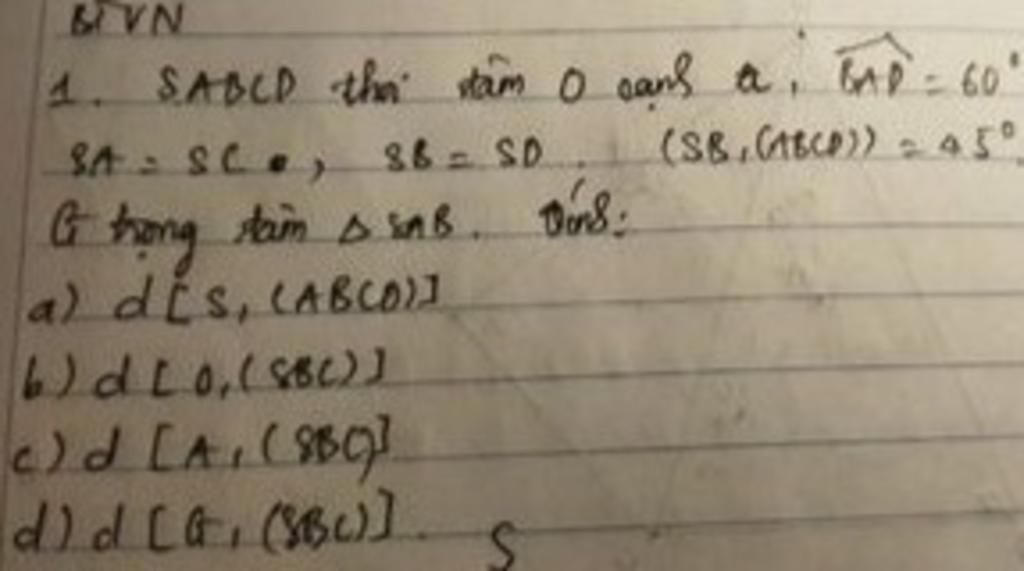 BTVN
1. SABCD thoi tâm O cạnh a, BAD = 60°
SA = SC, SB = SD. (SB,(ABCD)) = 45°.
G trọng tâm Δ SAB. Tính:
a) d[S, (ABCD)]
b) d[O,(SBC)]
c) d[A, (SBC)]
d) d[G, (SBC)].
S